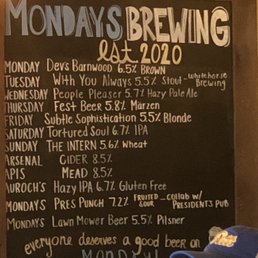 MONDAYS BREWING
est 2020
MONDAY Dev's Barnwood 6.5% BROWN
TUESDAY With You Always 5.5% Stout - whitehorse Brewing
WEDNESDAY People Pleaser 5.7% Hazy Pale Ale
THURSDAY Fest Beer 5.8% Märzen
FRIDAY Subtle Sophistication 5.5% Blonde
SATURDAY Tortured Soul 6.7% IPA
SUNDAY THE INTERN 5.6% Wheat
ARSENAL CIDER 8.5%
APIS MEAD 8.5%
AUROCH'S Hazy IPA 6.7% Gluten Free
MONDAY'S PRES PUNCH 7.2% FRUITED SOUR - collab w/ PRESIDENTS PUB
MONDAYS Lawn Mower Beer 5.5% Pilsner
everyone deserves a good beer on
MONDAY!